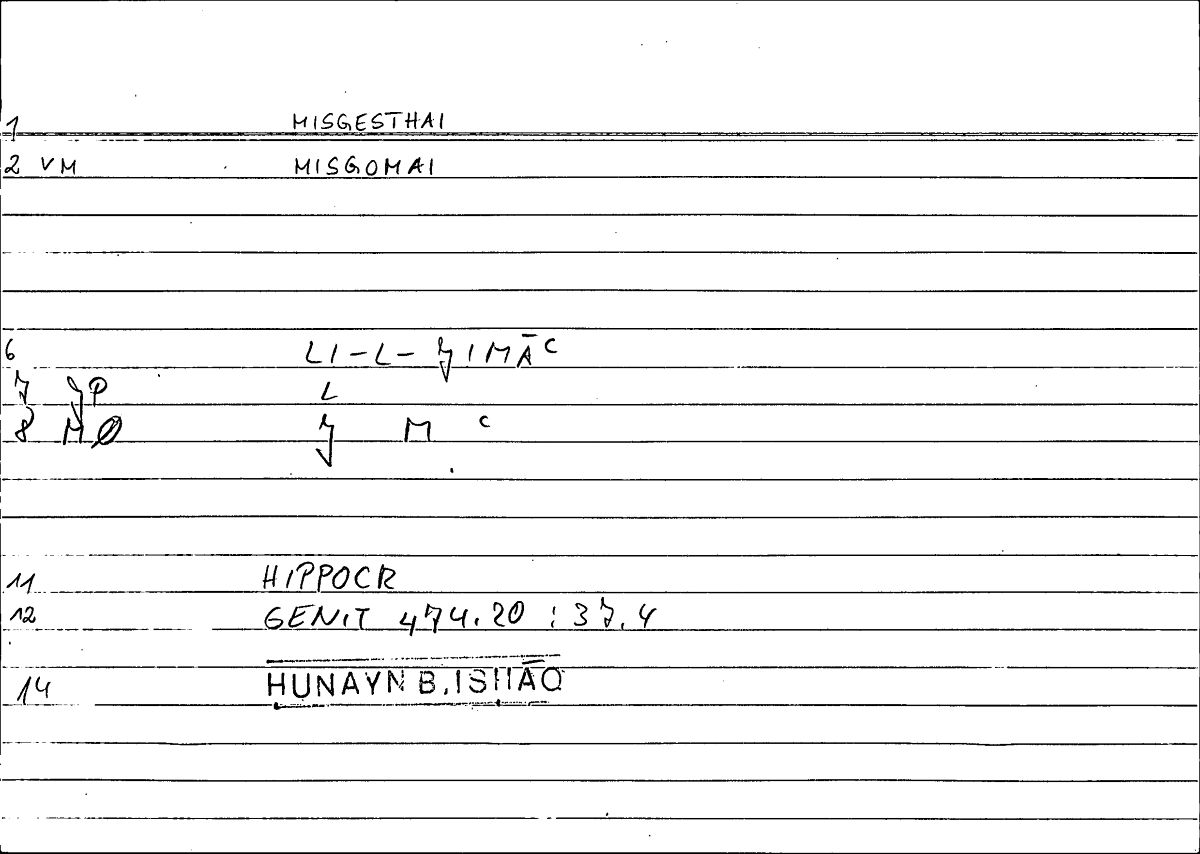 1 MISGESTHAI
2 VM MISGOMAI
6 LI-L-ǦIMĀC
7 L
8 MØ Ǧ M C
11 HIPPOCR
12 GENIT 474.20 : 37.4
14 HUNAYN B. ISḤĀQ